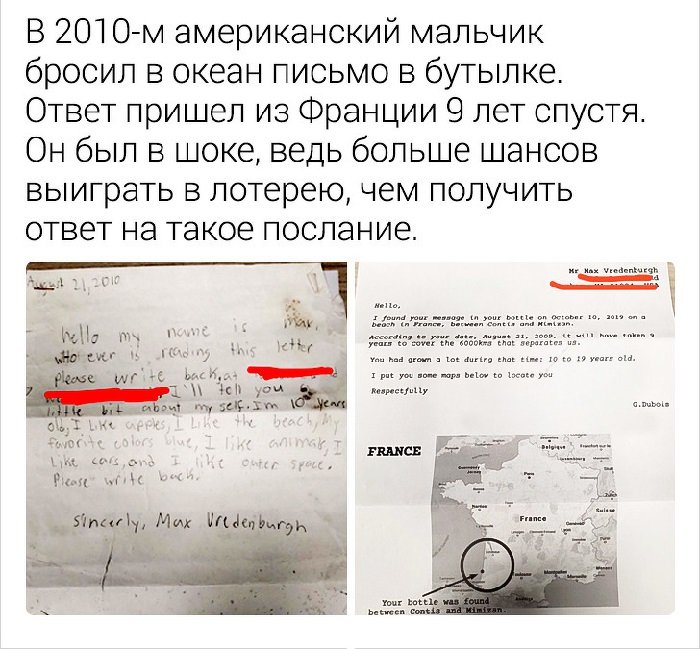 В 2010-м американский мальчик
бросил в океан письмо в бутылке.
Ответ пришел из Франции 9 лет спустя.
Он был в шоке, ведь больше шансов
выиграть в лотерею, чем получить
ответ на такое послание.
August 21, 2010
hello my name is max,
who ever is reading this letter
please write back, at
I'll tell you a
little bit about my self. Im 10 years
old, I like apples, I like the beach, My
favorite colors blue, I like animals, I
like cars, and I like outer space.
Please write back.
sincerly, Max Vredenburgh
Mr Max Vredenburgh
Hello,
I found your message in your bottle on October 10, 2019 on a
beach in France, between Contis and Mimizan.
According to your date, August 21, it will have taken 9
years to cover the 6000kms that separates us.
You had grown a lot during that time: 10 to 19 years old.
I put you some maps below to locate you
Respectfully
G.Dubois
FRANCE
Belgique
Frankfurt
Luxembourg
Guernsey
Jersey
Paris
Nantes
Zurich
Suisse
France
Geneva
Lyon
Toulouse
Montpellier
Marseille
Your bottle was found
between Contis and Mimizan.